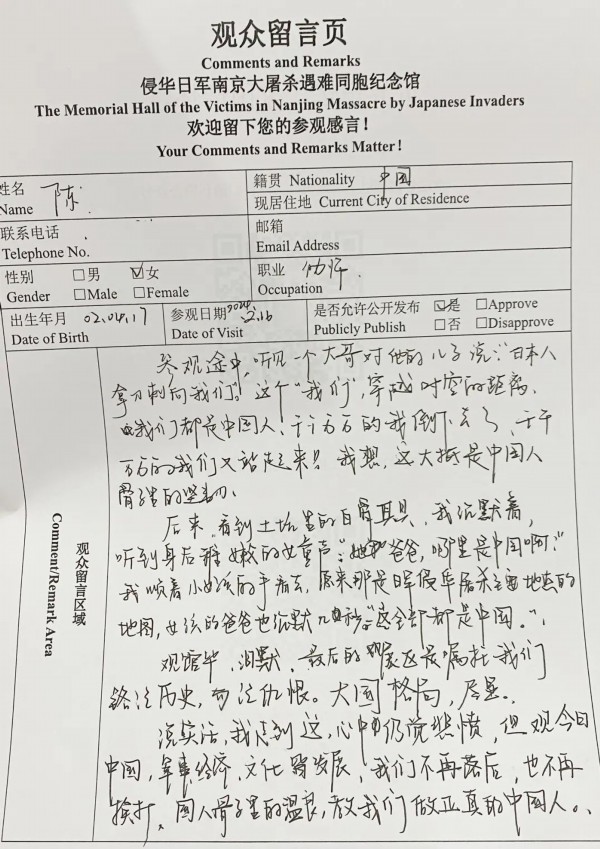 观众留言页
Comments and Remarks
侵华日军南京大屠杀遇难同胞纪念馆
The Memorial Hall of the Victims in Nanjing Massacre by Japanese Invaders
欢迎留下您的参观感言！
Your Comments and Remarks Matter！
姓名 陈
Name
籍贯 Nationality 中国
现居住地 Current City of Residence
联系电话
Telephone No.
邮箱
Email Address
性别 □男 ☑女
Gender □Male □Female
职业
Occupation
出生年月 02.04.17
Date of Birth
参观日期 2024.2.16
Date of Visit
是否允许公开发布 ☑是 □Approve
Publicly Publish □否 □Disapprove
观众留言区域
Comment/Remark Area
参观途中，听见一个大哥对他的儿子说："日本人
拿刀刺向我们。"这个"我们"，穿越时空的距离，
我们都是中国人！千千万万的我倒下去了，千千
万万的我们又站起来！我想，这大抵是中国人
骨子里的坚韧。
后来，看到土坑里的白骨具具，我沉默着，
听到身后稚嫩的女童声："爸爸，哪里是中国啊？"
我顺着小女孩的手看去，原来那是侵华屠杀主要地点的
地图，女孩的爸爸也沉默几秒："这全部都是中国。"
观馆毕，泪默，最后的展区是嘱托我们
铭记历史，勿记仇恨。大国格局，尽显。
说实话，我感到这，心中仍觉悲愤，但观今日
中国，军事经济，文化皆发展，我们不再落后，也不再
挨打，国人骨子里的温良，教我们做正真的中国人。